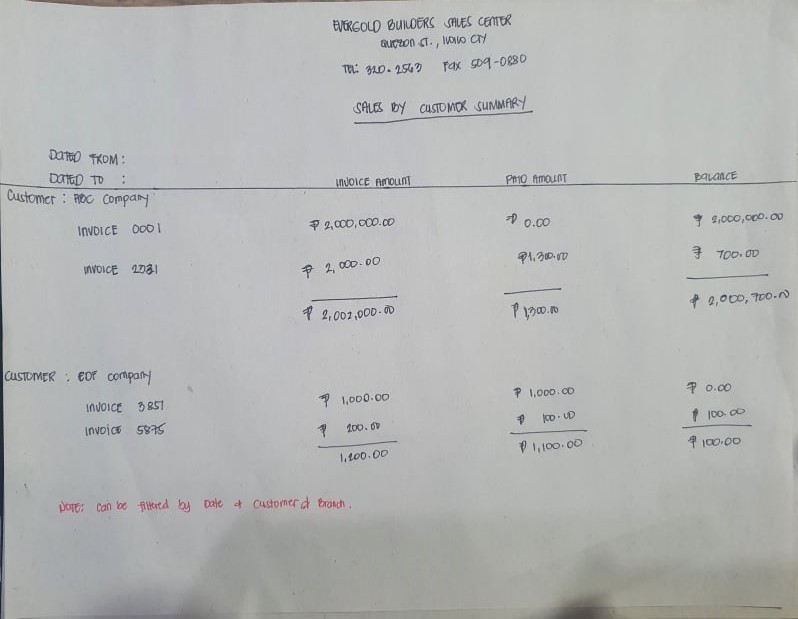 EVERGOLD BUILDERS SALES CENTER
QUEZON ST., ILOILO CITY
TEL: 320-2543 FAX 509-0880
SALES BY CUSTOMER SUMMARY
DATED FROM:
DATED TO :
INVOICE AMOUNT PAID AMOUNT BALANCE
Customer : ABC Company
INVOICE 0001 ₱ 2,000,000.00 ₱ 0.00 ₱ 2,000,000.00
INVOICE 2031 ₱ 2,000.00 ₱1,300.00 ₱ 700.00
₱ 2,002,000.00 ₱ 1,300.00 ₱ 2,000,700.00
CUSTOMER : EDF company
INVOICE 3851 ₱ 1,000.00 ₱ 1,000.00 ₱ 0.00
INVOICE 5875 ₱ 200.00 ₱ 100.00 ₱ 100.00
1,200.00 ₱ 1,100.00 ₱ 100.00
NOTE: Can be filtered by Date & Customer & Branch.